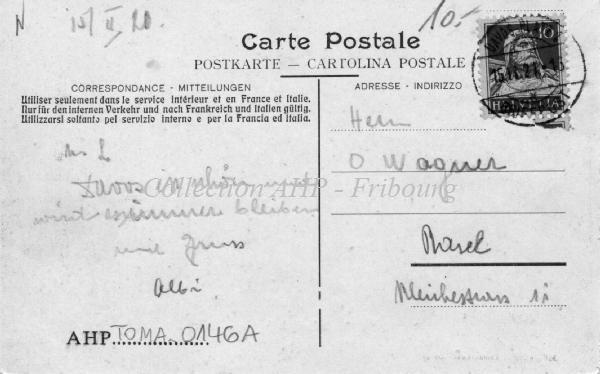 N 15/II 20. 10.-
Carte Postale
POSTKARTE - CARTOLINA POSTALE
CORRESPONDANCE - MITTEILUNGEN
Utiliser seulement dans le service intérieur et en France et Italie.
Nur für den internen Verkehr und nach Frankreich und Italien gültig.
Utilizzarsi soltanto pel servizio interno e per la Francia ed Italia.
ADRESSE - INDIRIZZO
10
HELVETIA
Herrn
O Wagner
Basel
Davos
Collection AHP - Fribourg
wird immer bleiben
Gruss
Albi.
AHP TOMA.0146A